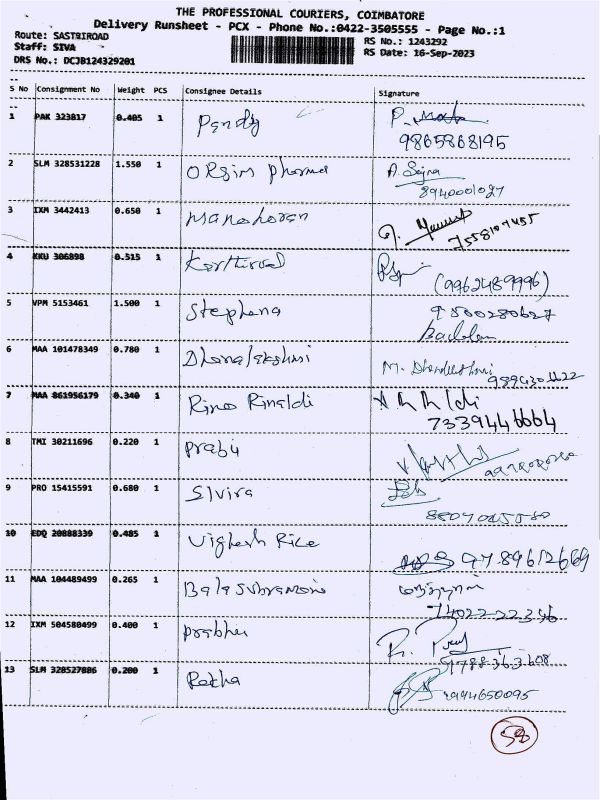 THE PROFESSIONAL COURIERS, COIMBATORE
Delivery Runsheet - PCX - Phone No.:0422-3505555 - Page No.:1
Route: SASTRIROAD
Staff: SIVA
DRS No.: DCJB124329201
RS No.: 1243292
RS Date: 16-Sep-2023
S No Consignment No Weight PCS Consignee Details Signature
1 PAK 323817 0.405 1 Pandy
9865868195
2 SLM 328531228 1.550 1 ORgim pharma
8940001027
3 IXM 3442413 0.650 1 Manoharan
7558107455
4 KKU 306898 0.515 1
(9962489996)
5 VPM 5153461 1.500 1 Stephena 9500280627
6 MAA 101478349 0.780 1 Dhanalakshmi M.
7 MAA 861956179 0.340 1 Rino Rinaldi
7339446664
8 TMI 30211696 0.220 1 prabu
9 PRO 15415591 0.680 1 Slvira
10 EDQ 20888339 0.485 1 Vighesh Rice 9789612669
11 MAA 104489499 0.265 1 Balasubramani
74022 22396
12 IXM 504580499 0.400 1 prabhu
9788363608
13 SLM 328527886 0.200 1 Rekha 9994650095